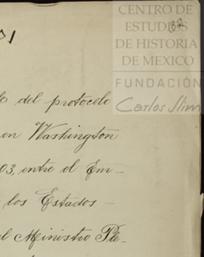 CENTRO DE
ESTUDIOS
DE HISTORIA
DE MEXICO
FUNDACIÓN
Carlos Slim
del protocolo
en Washington
03, entre el Em-
los Estados
el Ministro Ple-